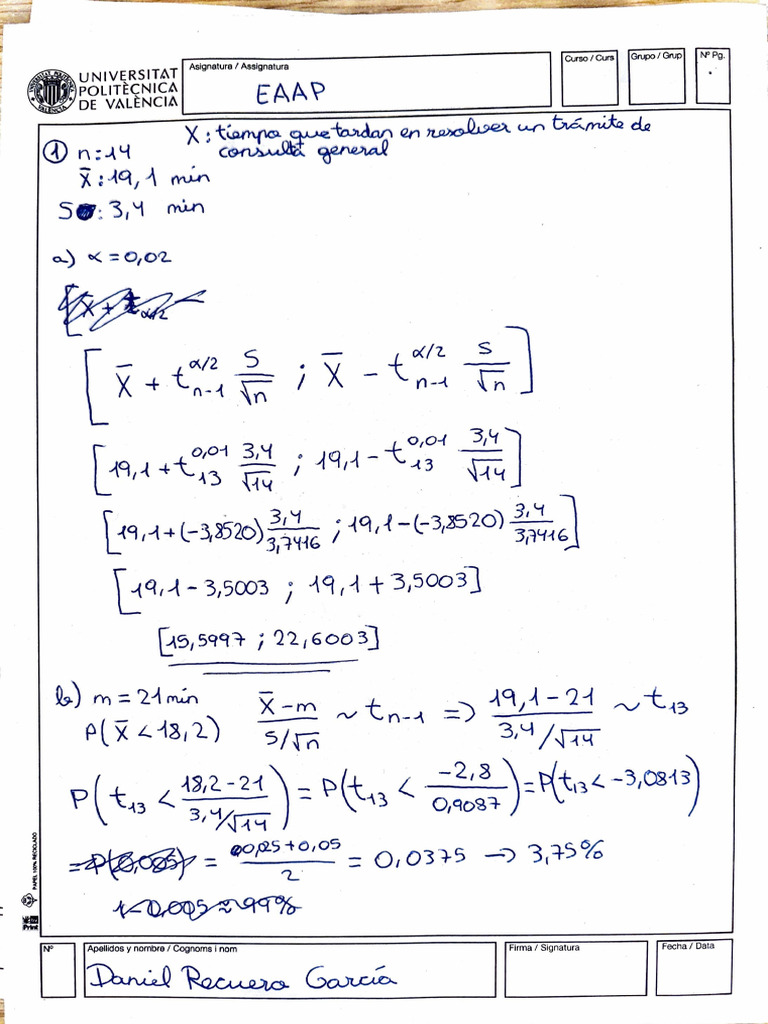 UNIVERSITAT
POLITÈCNICA
DE VALÈNCIA
Asignatura / Assignatura
EAAP
Curso / Curs
Grupo / Grup
Nº Pg.
X: tiempo que tardan en resolver un trámite de
consulta general
① n: 14
X̄: 19,1 min
S : 3,4 min
a) α = 0,02
[X̄ + t_{n-1}^{α/2} S/√n ; X̄ - t_{n-1}^{α/2} S/√n]
[19,1 + t_{13}^{0,01} 3,4/√14 ; 19,1 - t_{13}^{0,01} 3,4/√14]
[19,1 + (-3,8520) 3,4/3,7416 ; 19,1 - (-3,8520) 3,4/3,7416]
[19,1 - 3,5003 ; 19,1 + 3,5003]
[15,5997 ; 22,6003]
b) m = 21 min (X̄ - m)/(S/√n) ~ t_{n-1} => (19,1 - 21)/(3,4/√14) ~ t_{13}
P(X̄ < 18,2)
P(t_{13} < (18,2 - 21)/(3,4/√14)) = P(t_{13} < -2,8/0,9087) = P(t_{13} < -3,0813)
= (0,025 + 0,05)/2 = 0,0375 → 3,75%
PAPEL 100% RECICLADO
Nº
Apellidos y nombre / Cognoms i nom
Daniel Recuero García
Firma / Signatura
Fecha / Data